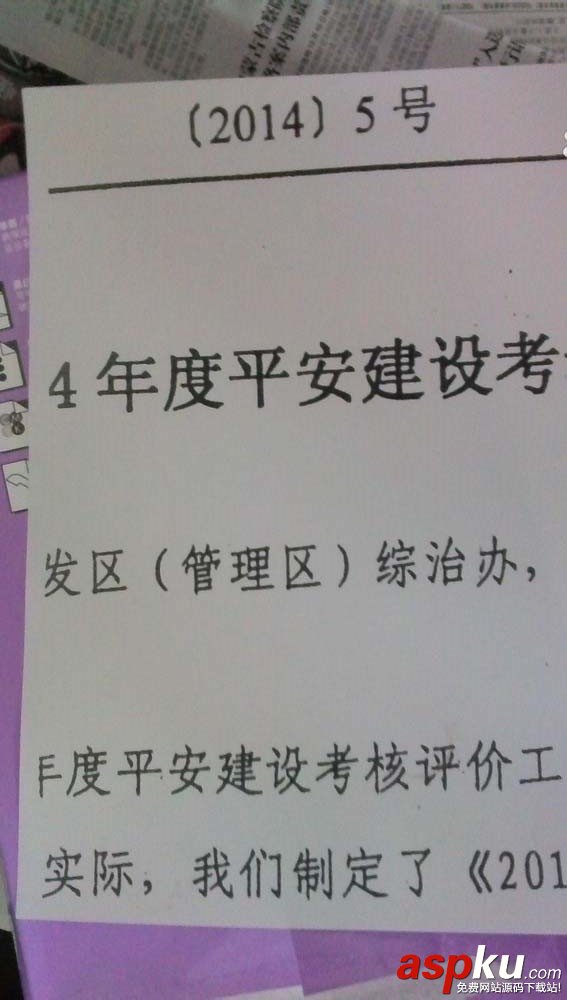 〔2014〕5号
4年度平安建设考
发区（管理区）综治办，
年度平安建设考核评价工
实际，我们制定了《201
aspku.com
免费网站源码下载站!